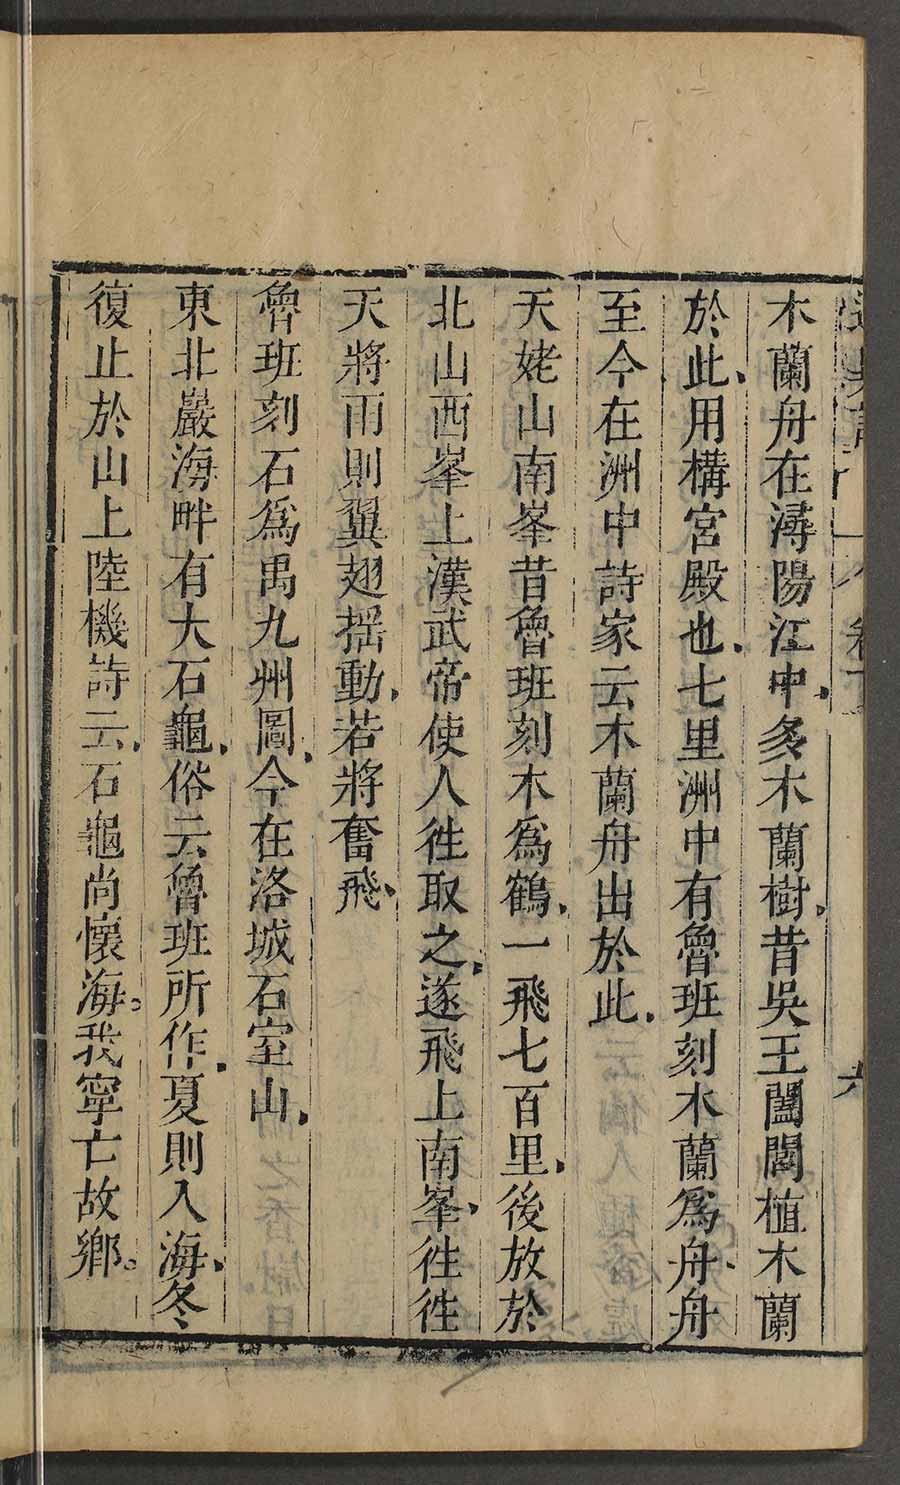 卷下
六
木蘭舟在潯陽江中、多木蘭樹、昔吳王闔閭植木蘭
於此、用構宮殿也、七里洲中有魯班刻木蘭爲舟、舟
至今在洲中詩家云木蘭舟出於此、
天姥山南峯昔魯班刻木爲鶴、一飛七百里、後放於
北山西峯上漢武帝使人徃取之、遂飛上南峯、徃徃
天將雨則翼翅揺動、若將奮飛、
魯班刻石爲禹九州圖、今在洛城石室山、
東北巖海畔有大石龜、俗云魯班所作、夏則入海、冬
復止於山上陸機詩云、石龜尚懷海。我寧亡故鄉。